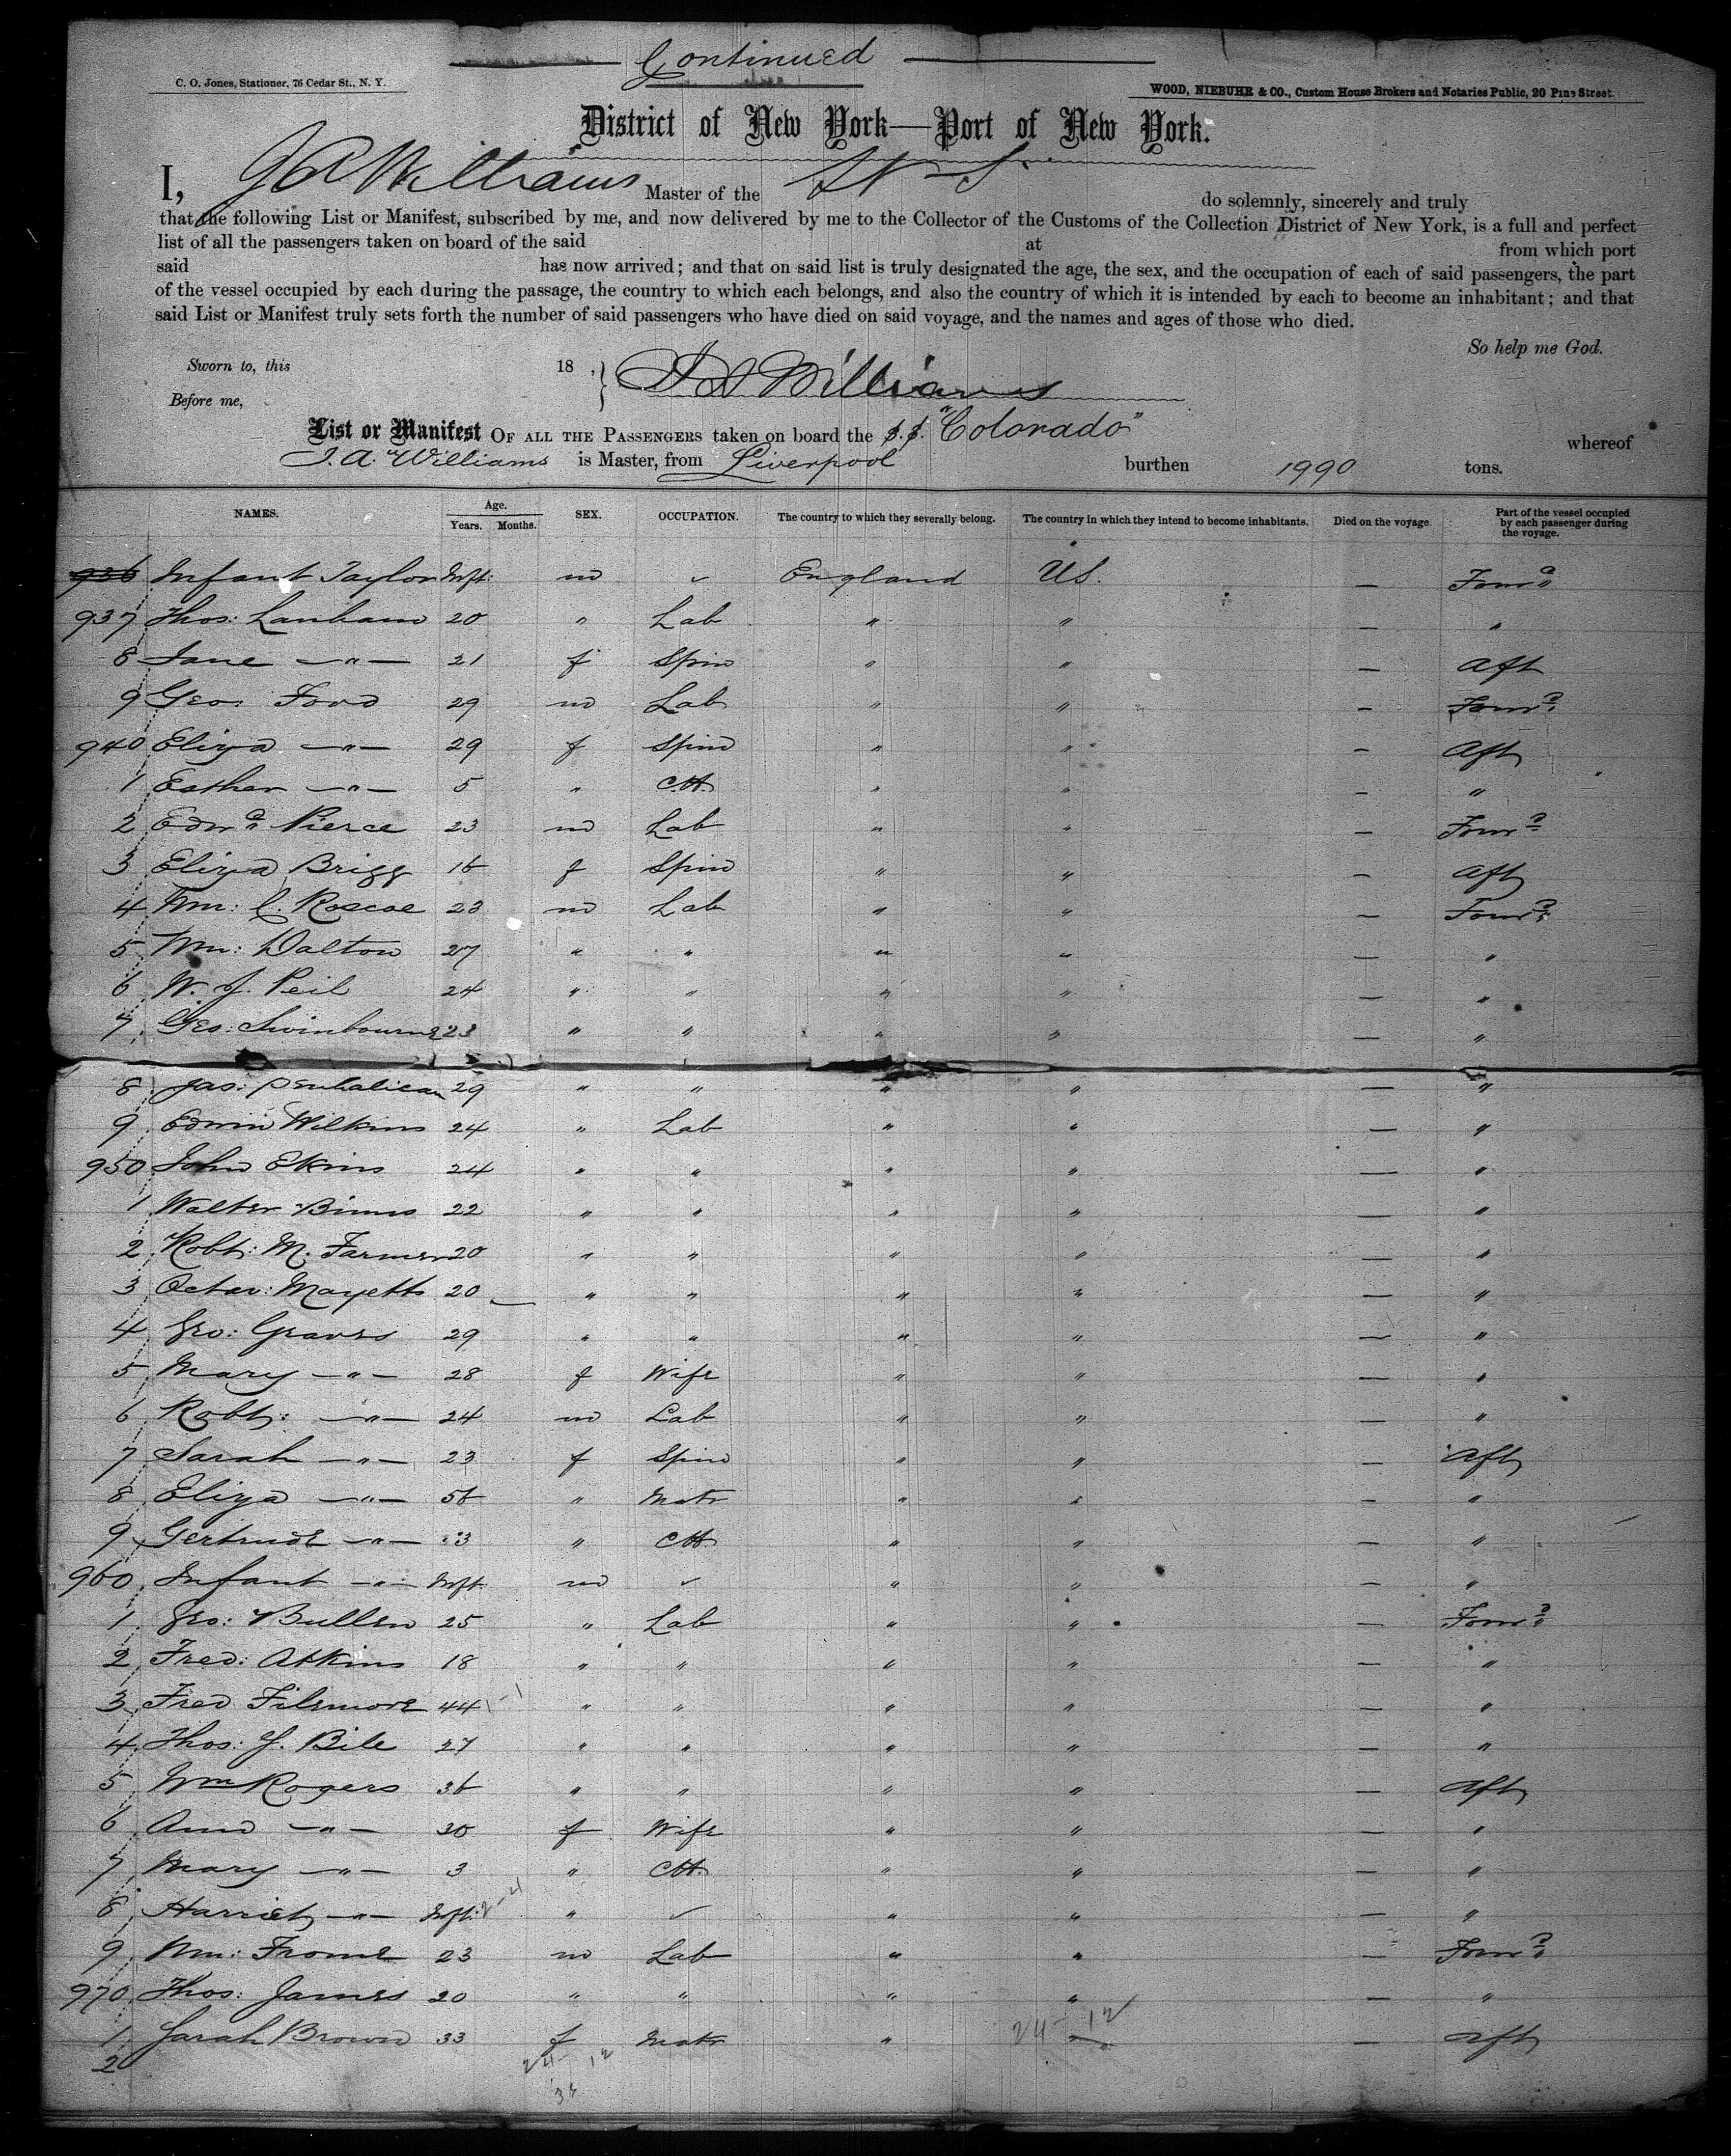 Continued
C. O. Jones, Stationer, 76 Cedar St., N. Y.
WOOD, NIEBUHR & CO., Custom House Brokers and Notaries Public, 20 Pine Street.
District of New York—Port of New York.
I, J A Williams Master of the do solemnly, sincerely and truly
that the following List or Manifest, subscribed by me, and now delivered by me to the Collector of the Customs of the Collection District of New York, is a full and perfect
list of all the passengers taken on board of the said at from which port
said has now arrived; and that on said list is truly designated the age, the sex, and the occupation of each of said passengers, the part
of the vessel occupied by each during the passage, the country to which each belongs, and also the country of which it is intended by each to become an inhabitant; and that
said List or Manifest truly sets forth the number of said passengers who have died on said voyage, and the names and ages of those who died.
So help me God.
Sworn to, this 18 , } J A Williams
Before me,
List or Manifest OF ALL THE PASSENGERS taken on board the S.S. "Colorado" whereof
J. A. Williams is Master, from Liverpool burthen 1990 tons.
NAMES. Age. Years. Months. SEX. OCCUPATION. The country to which they severally belong. The country in which they intend to become inhabitants. Died on the voyage. Part of the vessel occupied by each passenger during the voyage.
936 Infant Taylor Inft: m ✓ England U.S. — Forwd
937 Thos: Lanham 20 " Lab " " — "
8 Jane —"— 21 f Spin " " — Aft
9 Geo. Ford 29 m Lab " " — Forwd
940 Eliza —"— 29 f Spin " " — Aft
1 Esther —"— 5 " Ch. " " — "
2 Edwd Pierce 23 m Lab " " — Forwd
3 Eliza Brigg 16 f Spin " " — Aft
4 Wm: C. Roscoe 23 m Lab " " — Forwd
5 Wm: Dalton 27 " " " " — "
6 W. J. Peil 24 " " " " — "
7 Geo: Swinbourne 23 " " " " — "
8 Jas: 29 " " " " — "
9 Edwin Wilkins 24 " Lab " " — "
950 John Ekins 24 " " " " — "
1 Walter Binns 22 " " " " — "
2 Robt: M. Farmer 20 " " " " — "
3 Octav: Mayetts 20 — " " " " — "
4 Geo: Graves 29 " " " " — "
5 Mary —"— 28 f Wife " " — "
6 Robt: —"— 24 m Lab " " — "
7 Sarah —"— 23 f Spin " " — Aft
8 Eliza —"— 56 " Matr " " — "
9 Gertrude —"— 3 " Ch " " — "
960 Infant —"— Inft m ✓ " " — "
1 Geo: Bullen 25 " Lab " " — Forwd
2 Fred: Atkins 18 " " " " — "
3 Fred Filemore 44 " " " " — "
4 Thos: J. Bile 27 " " " " — "
5 Wm Rogers 36 " " " " — Aft
6 Ann —"— 30 f Wife " " — "
7 Mary —"— 3 " Ch. " " — "
8 Harriet —"— Inft: " ✓ " " — "
9 Wm: Frome 23 m Lab " " — Forwd
970 Thos: James 20 " " " " — "
1 Sarah Brown 33 f Matr " " — Aft
2
24 12
24 12